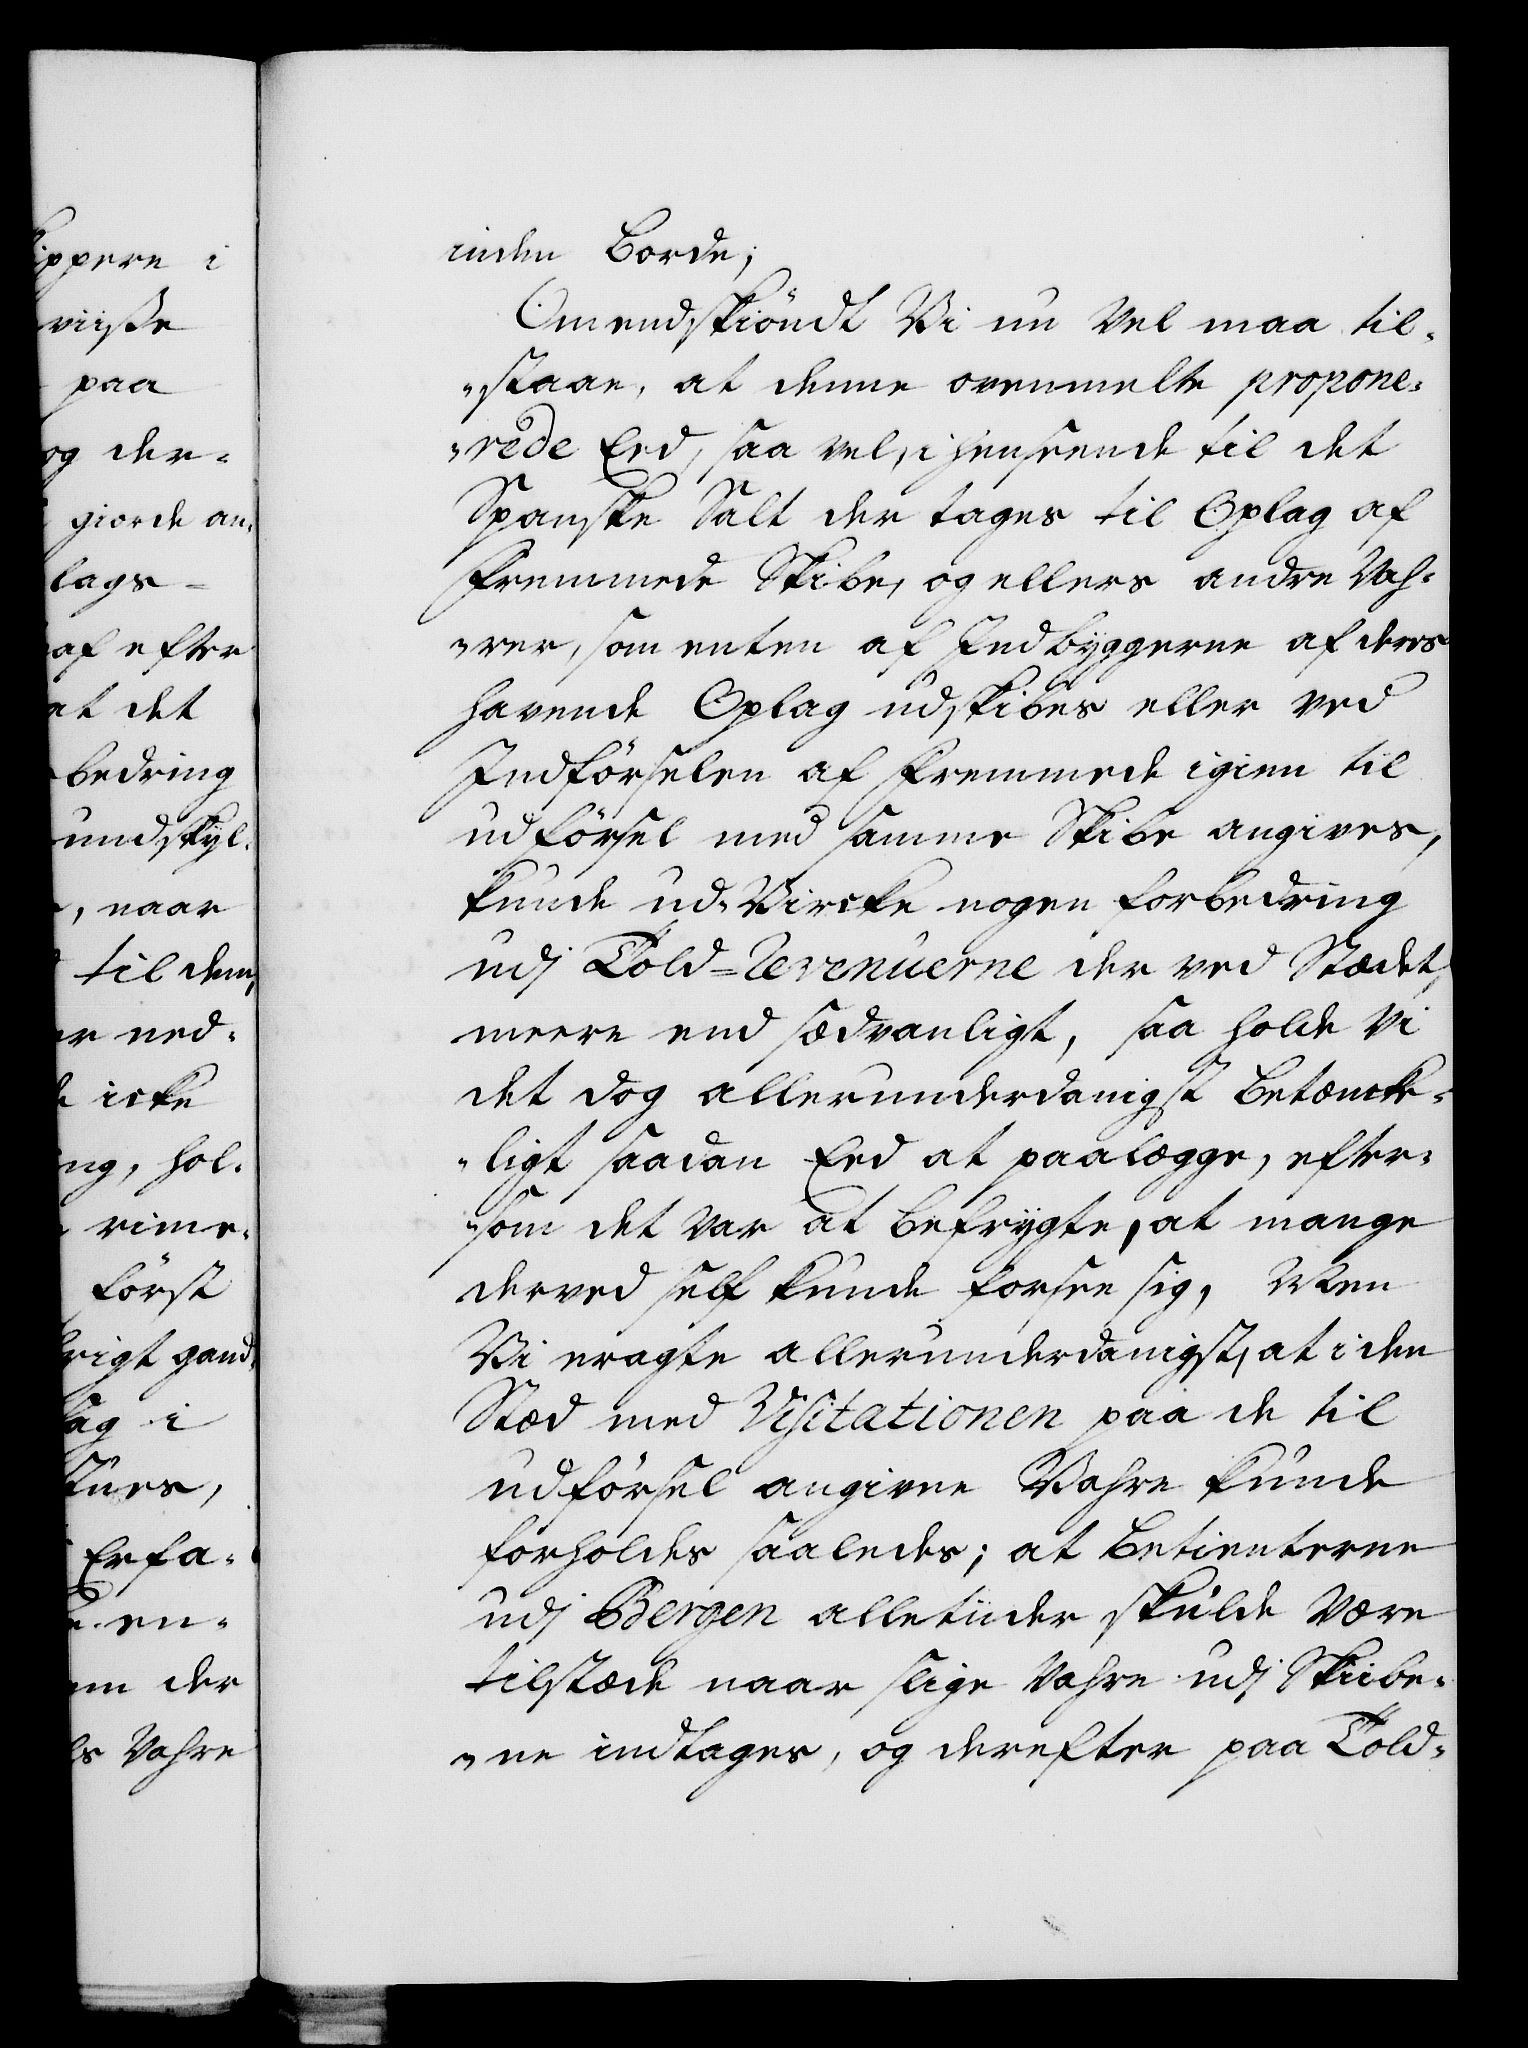 ippere i
viisse
paa
og der-
giorde an-
lags-
af efter
at det
bedring
undskyl-
, naar
til dem,
er ned-
icke
ng, hol-
rime-
först
rigt gand-
lag i
tues,
Erfa-
en-
der
Vahre
inden Borde;
Omendskiöndt Vi nu Vel maa til-
-staae, at denne ovenmelte propone-
-rede Eed, saa vel i henseende til det
Spanske Salt der tages til Oplag af
fremmede Skibe, og ellers andre Vah-
-rer, som enten af Indbyggerne af deres
havende Oplag udskibes eller ved
Indförselen af fremmede igien til
udförsel med samme Skibe angives,
kunde ud-Vircke nogen forbedring
udj Told-Revenuerne der ved Stædet,
meere end sædvanligt, saa holde Vi
det dog allerunderdanigst betænck-
-ligt saadan Eed at paalægge, efter-
-som det var at befrygte, at mange
derved self kunde forsee sig, Men
Vi eragte allerunderdanigst, at i den
Stæd med Visitationen paa de til
udförsel angivne Vahre kunde
forholdes saaledes; at Betienterne
udj Bergen alletiider skulde være
tilstæde naar slige Vahre udj Skibe-
-ne indtages, og derefter paa Told-